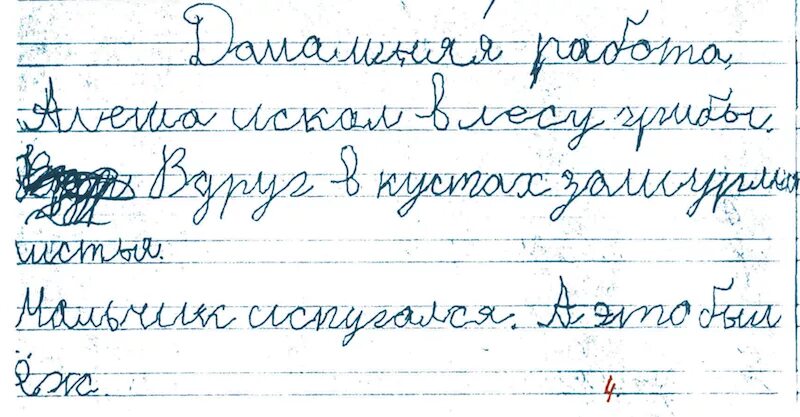 Домашняя работа.
Алеша искал в лесу грибы.
Вдруг в кустах зашуршали
листья.
Мальчик испугался. А это был
ёж.
4.